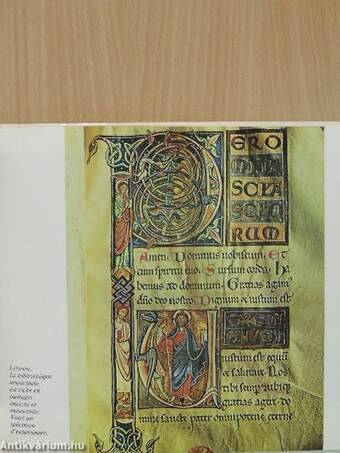 PERO
MNIA
SCLA
SCLO
RUM
Amen. Dominus vobiscum. Et
cum spiritu tuo. Sursum corda. ha
bemus ad dominum. Gratias agam
dño deo nostro. Dignum & iustum est
iustum est equū
& salutare. Nos
tibi semp & ubiq
gratias agere. do
mine sancte pater omnipotens eterne
La bibliothèque
municipale
est riche en
ouvrages
anciens et
manuscrits.
Voici un
spécimen
d'enluminure.
Antikvarium.hu